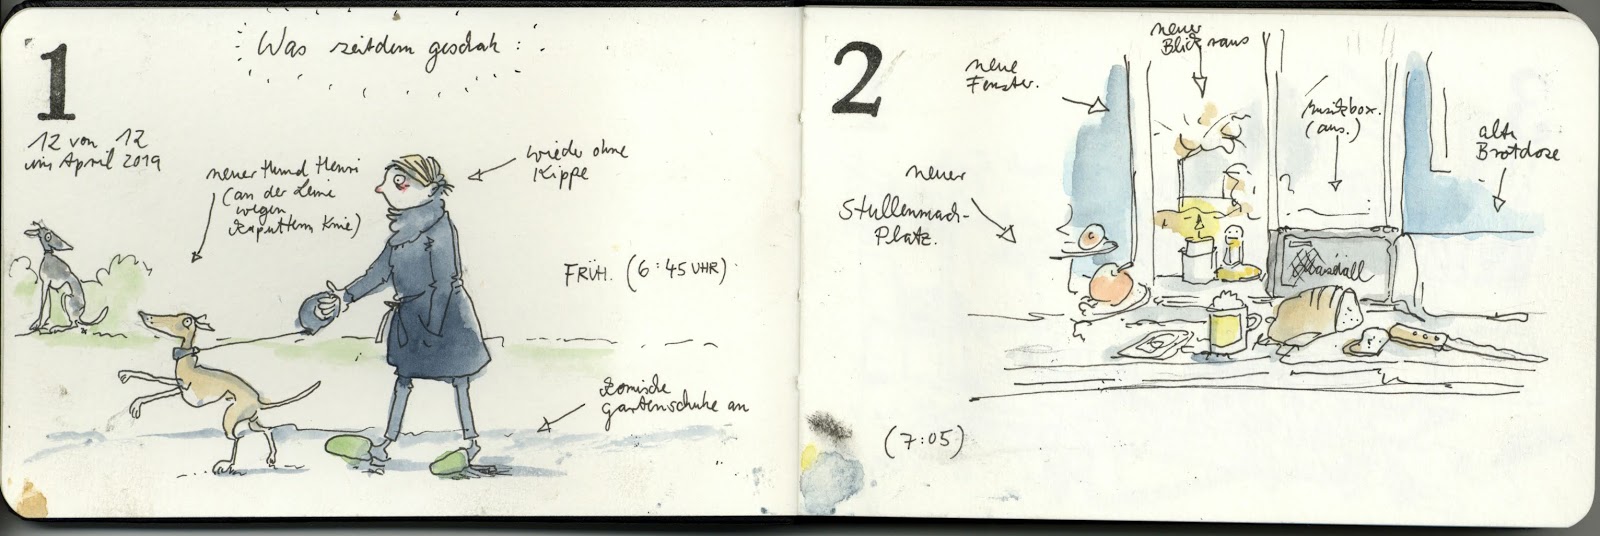 1
Was seitdem geschah:
12 von 12
im April 2019
neuer Hund Henri
(an der Leine
wegen
kaputtem Knie)
wieder ohne
Kippe
FRÜH. (6:45 UHR)
komische
gartenschuhe an
2
neue
Fenster.
neuer
Blick raus
musikbox.
(aus.)
alte
Brotdose
neuer
Stullenmach-
Platz.
Marshall
(7:05)